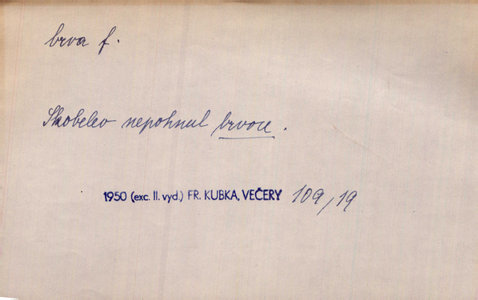 brva f.
Skobelev nepohnul brvou.
1950 (exc. II. vyd.) FR. KUBKA, VEČERY 109/19